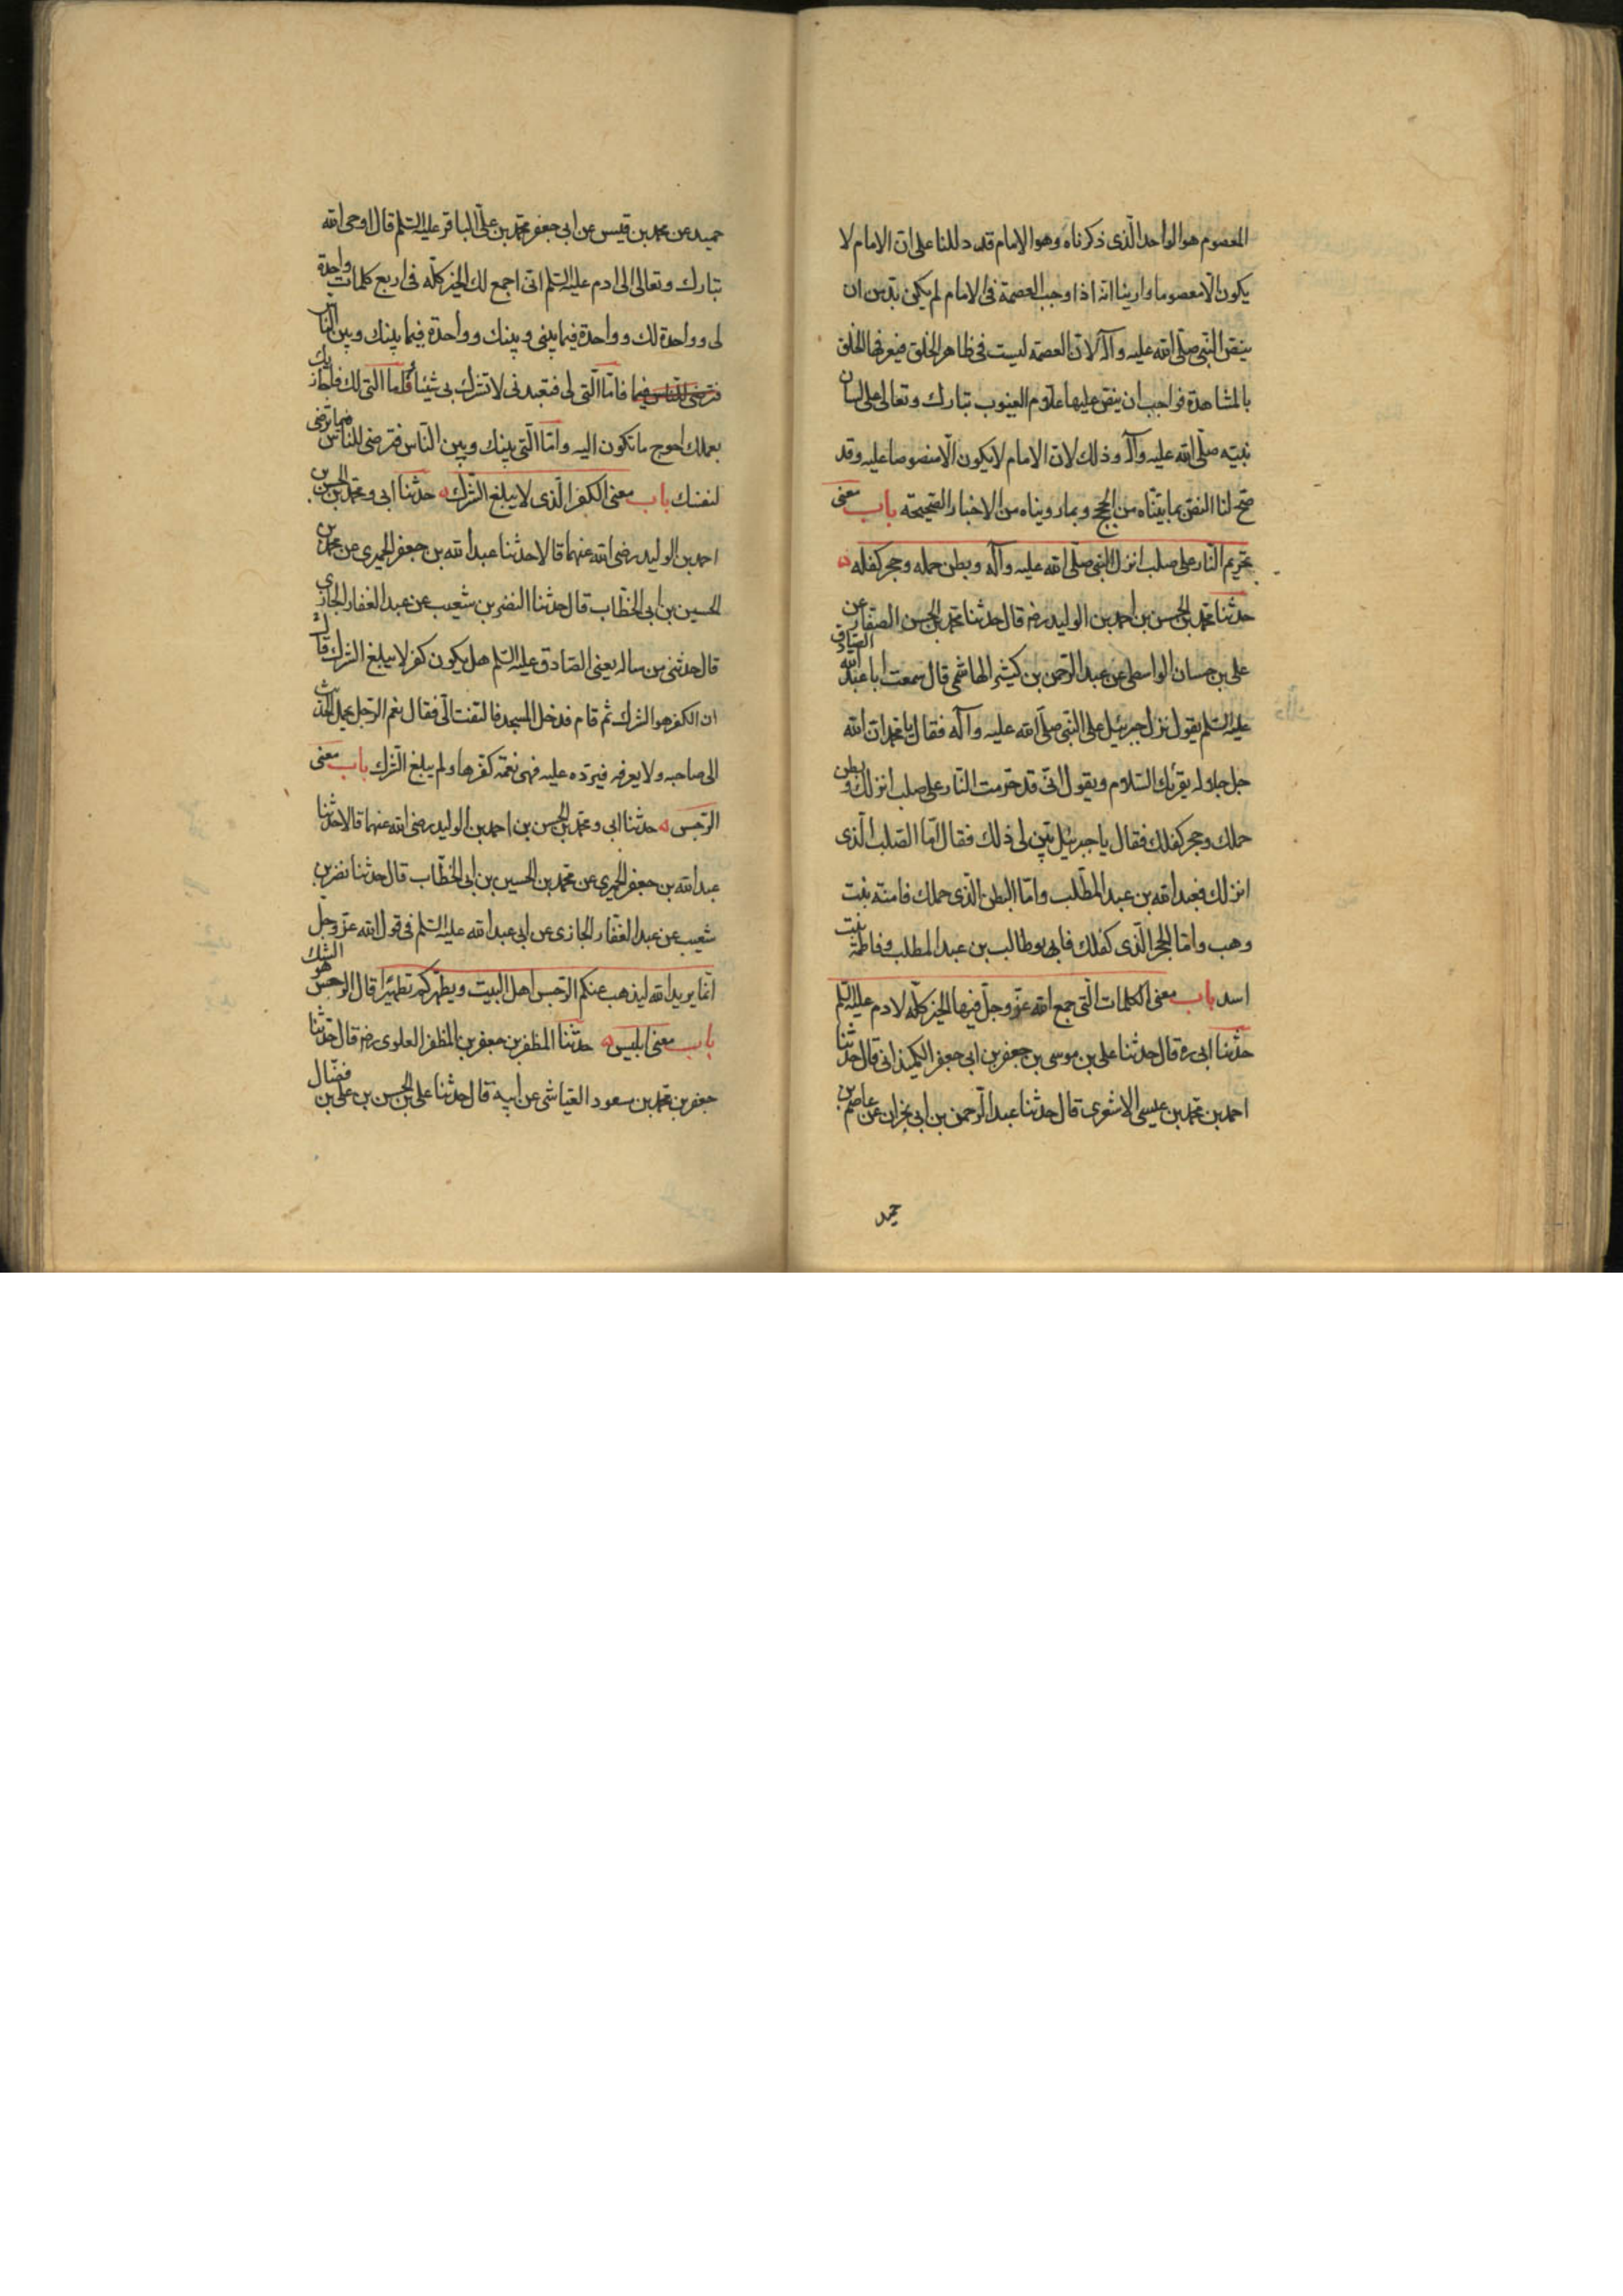 المعصوم هو الواحد الّذى ذكرناه وهو الامام قد دللنا على انّ الامام لا
يكون الّا معصوما وارينا انّه اذا وجب العصمة فى الامام لم يكن بدّ من ان
ينصّ النّبى صلّى الله عليه وآله لانّ العصمة ليست فى ظاهر الخلق فيعرفها الخلق
بالمشاهدة فواجب ان ينصّ عليها علّام الغيوب تبارك وتعالى على لسان
نبيّه صلّى الله عليه وآله وذلك لانّ الامام لا يكون الّا منصوصا عليه وقد
صحّ لنا النصّ بما بيّنّاه من الحجج وبما رويناه من الاخبار الصّحيحة باب معنى
تحريم النّار على صلب انزل النّبى صلّى الله عليه وآله وبطن حمله وحجر كفله
حدثنا محمّد بن الحسن بن احمد بن الوليد رضه قال حدثنا محمّد بن الحسن الصفّار عن
على بن حسان الواسطى عن عبد الرّحمن بن كثير الهاشمى قال سمعت ابا عبد الله الصّادق
عليه السّلم يقول نزل جبرئيل على النّبى صلّى الله عليه وآله فقال يا محمّد انّ الله
جل جلاله يقرئك السّلام ويقول انّى قد حرّمت النّار على صلب انزلك وبطن
حملك وحجر كفلك فقال يا جبرئيل بيّن لى ذلك فقال امّا الصّلب الّذى
انزلك فعبد الله بن عبد المطّلب وامّا البطن الّذى حملك فامنة بنت
وهب وامّا الحجر الّذى كفلك فابو طالب بن عبد المطلب وفاطمة بنت
اسد باب معنى الكلمات الّتى جمع الله عزّ وجلّ فيها الخير كلّه لادم عليه السّلم
حدّثنا ابى ره قال حدثنا على بن موسى بن جعفر بن ابى جعفر الكمندانى قال حدثنا
احمد بن محمّد بن عيسى الاشعرى قال حدثنا عبد الرّحمن بن ابى نجران عن عاصم بن
حميد
حميد عن محمد بن قيس عن ابى جعفر محمّد بن علىّ الباقر عليه السّلم قال اوحى الله
تبارك وتعالى الى ادم عليه السّلم انّى اجمع لك الخير كلّه فى اربع كلمات واحدة
لى وواحدة لك وواحدة فيما بينى وبينك وواحدة فيما بينك وبين النّاس
فترضى للنّاس فيما فامّا الّتى لى فتعبدنى لا تشرك بى شيئا وامّا الّتى لك فاجازيك
بعملك احوج ما تكون اليه وامّا الّتى بينك وبين النّاس فترضى للنّاس فيما ترضى
لنفسك باب معنى الكفر الّذى لا يبلغ الشّرك حدثنا ابى ومحمّد بن الحسن بن
احمد بن الوليد رضى الله عنهما قالا حدثنا عبد الله بن جعفر الحميرى عن محمّد بن
الحسين بن ابى الخطّاب قال حدثنا النضر بن شعيب عن عبد الغفار الجازى
قال حدثنى من ساله يعنى الصّادق عليه السّلم هل يكون كفر لا يبلغ الشرك قال
ان الكفر هو الشرك ثم قام فدخل المسجد فالتفت الىّ فقال نعم الرّجل يحمل الحديث
الى صاحبه ولا يعرفه فيردّه عليه فهى نعمة كفرها ولم يبلغ الشّرك باب معنى
الرّجس حدثنا ابى ومحمّد بن الحسن بن احمد بن الوليد رضى الله عنهما قالا حدّثنا
عبد الله بن جعفر الحميرى عن محمّد بن الحسين بن ابى الخطّاب قال حدثنا نضر بن
شعيب عن عبد الغفّار الجازى عن ابى عبد الله عليه السّلم فى قول الله عزّ وجل
انّما يريد الله ليذهب عنكم الرّجس اهل البيت ويطهّركم تطهيرا قال الرّجس هو الشك
باب معنى ابليس حدّثنا المظفر بن جعفر بن المظفر العلوى رضه قال حدّثنا
جعفر بن محمّد بن مسعود العيّاشى عن ابيه قال حدثنا على بن الحسن بن على بن فضّال